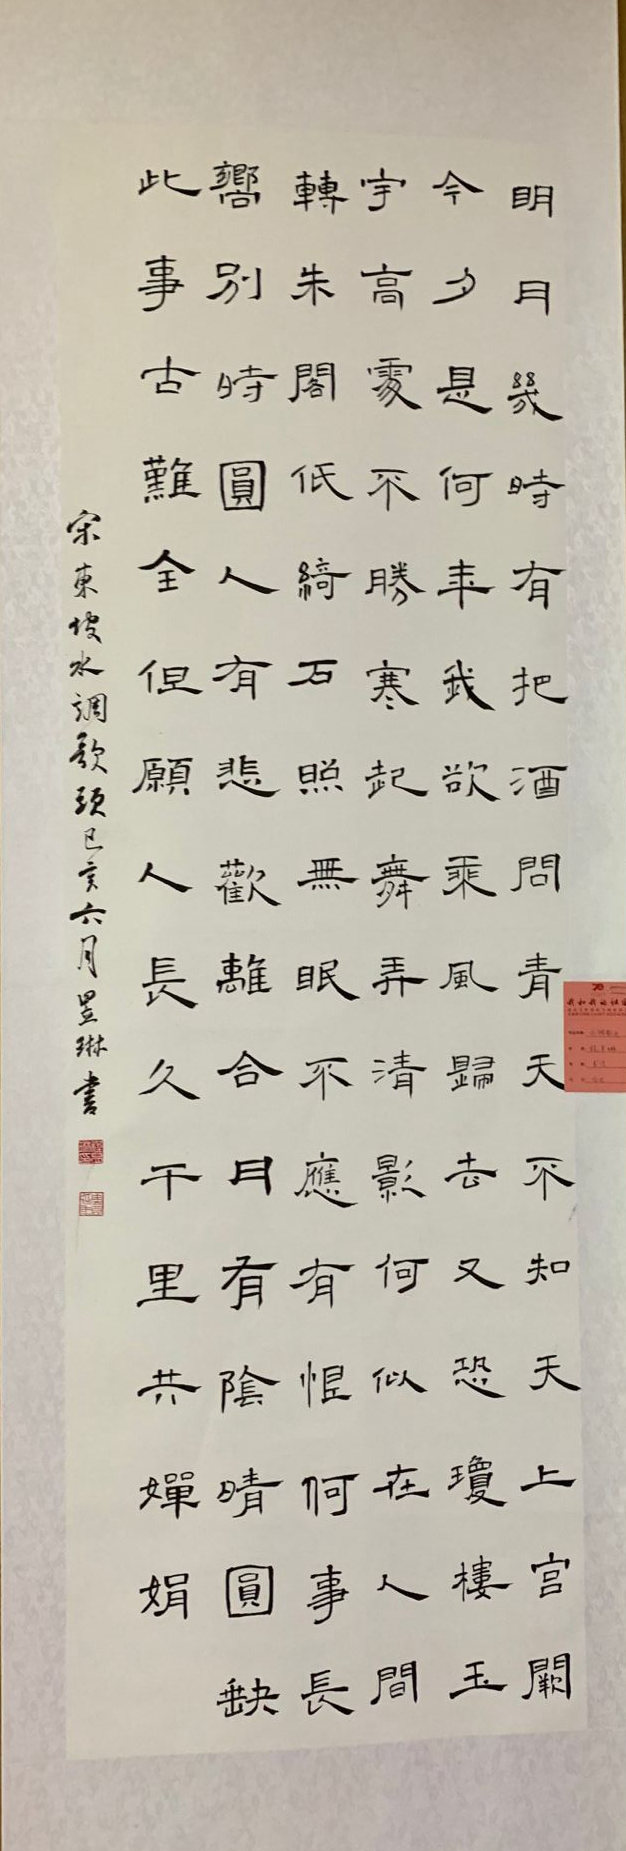 明月幾時有把酒問青天不知天上宮闕
今夕是何年我欲乘風歸去又恐瓊樓玉
宇高處不勝寒起舞弄清影何似在人間
轉朱閣低綺石照無眠不應有恨何事長
嚮別時圓人有悲歡離合月有陰晴圓缺
此事古難全但願人長久千里共嬋娟
宋東坡水調歌頭己亥六月昱琳書
70
我和我的祖國